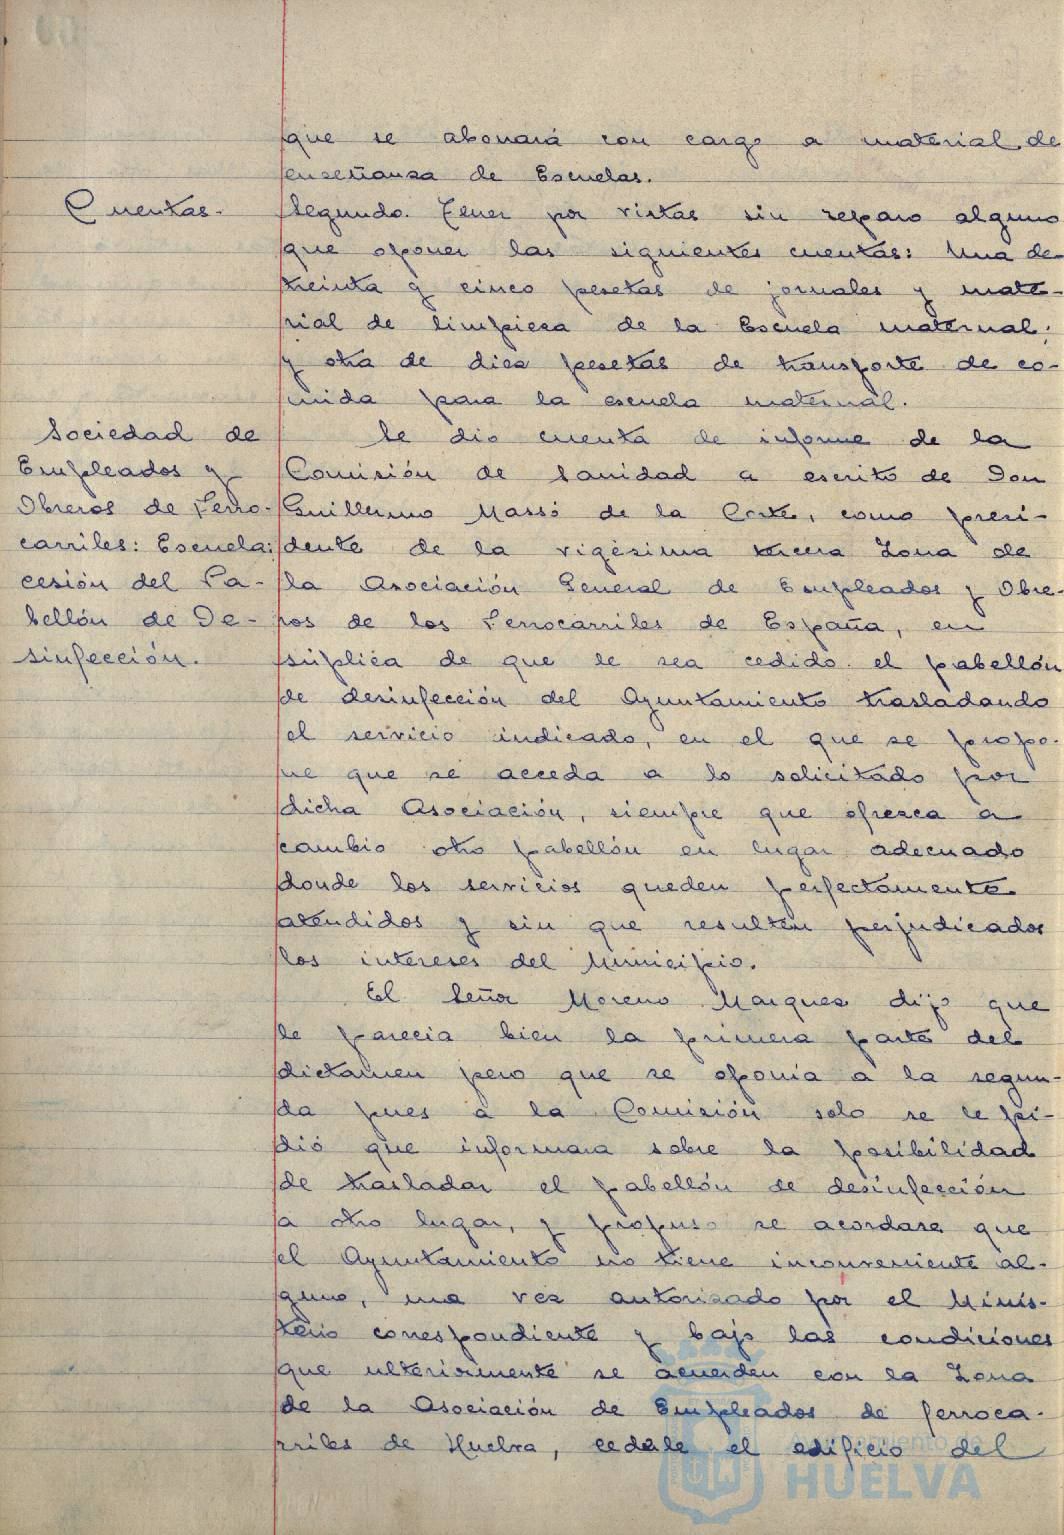 que se abonará con cargo a material de
enseñanza de Escuelas.
Cuentas.
Segundo. Tener por vistas sin reparo alguno
que oponer las siguientes cuentas: Una de
treinta y cinco pesetas de jornales y mate-
rial de limpieza de la Escuela maternal;
y otra de diez pesetas de transporte de co-
mida para la escuela maternal.
Sociedad de
Empleados y
Obreros de Ferro-
carriles: Escuela:
cesión del Pa-
bellón de De-
sinfección.
Se dio cuenta de informe de la
Comisión de Sanidad a escrito de Don
Guillermo Massó de la Corte, como presi-
dente de la vigésima tercera Zona de
la Asociación General de Empleados y Obre-
ros de los Ferrocarriles de España, en
súplica de que le sea cedido el pabellón
de desinfección del Ayuntamiento trasladando
el servicio indicado, en el que se propo-
ne que se acceda a lo solicitado por
dicha Asociación, siempre que ofrezca a
cambio otro pabellón en lugar adecuado
donde los servicios queden perfectamente
atendidos y sin que resulten perjudicados
los intereses del Municipio.
El Señor Moreno Marquez dijo que
le parecia bien la primera parte del
dictamen pero que se oponía a la segun-
da pues a la Comisión solo se le pi-
dió que informara sobre la posibilidad
de trasladar el pabellón de desinfección
a otro lugar, y propuso se acordara que
el Ayuntamiento no tiene inconveniente al-
guno, una vez autorizado por el Minis-
terio correspondiente y bajo las condiciones
que ulteriormente se acuerden con la Zona
de la Asociación de Empleados de ferroca-
rriles de Huelva, cederle el edificio del
Ayuntamiento de
HUELVA